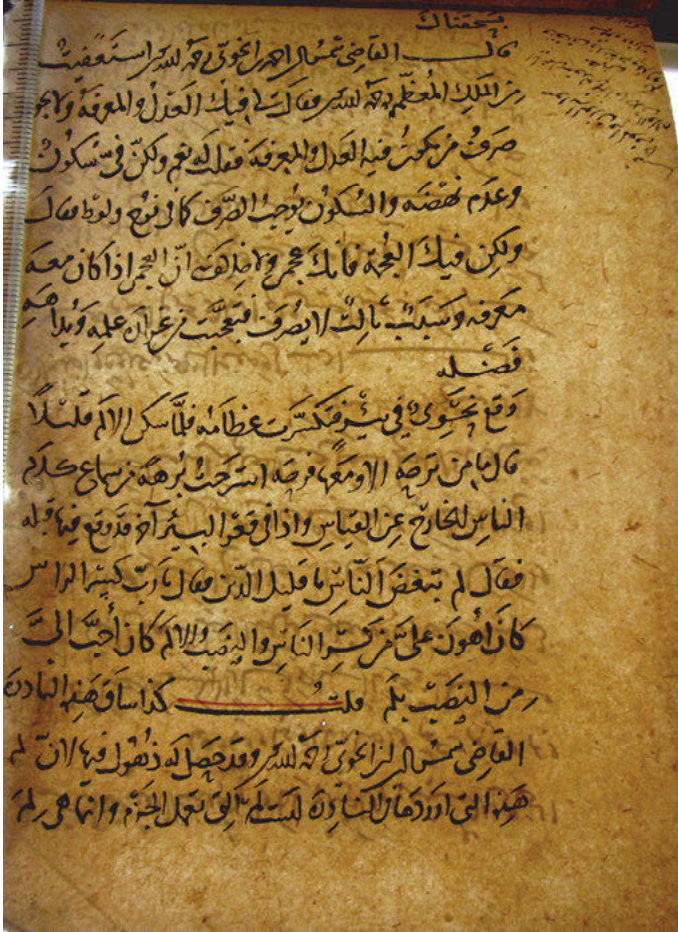 قال القاضي شمس الدين احمد الخوئي رحمه الله استعفيت
من الملك المعظم رحمه الله فقال لي فيك العدل والمعرفة ولا يجوز
صرف من يكون فيه العدل والمعرفة فقلت له نعم ولكن في سكون
وعدم نهضه والسكون يوجب الصرف كما في نوح ولوط فقال
ولكن فيك العجمة فانك عجمي ولا خلاف ان العجمي اذا كان معه
معرفه وسبب ثالث لا يصرف فتعجبت من غزارة علمه وبداهة
فضله
وقع نحوي في بئر فتكسرت عظامه فلما سكن الالم قليلا
قال ما من ترحه الا ومعها فرحه استرحت برهة من سماع كلام
الناس الخارج عن القياس واذا في قعر البئر آخر قد وقع فيها قبله
فقال لم تبغض الناس يا قليل الدين فقال يا رب كسر الراس
كان اهون علي من كسر الناس والنصب والالم كان أحب الي
من النصب بلم قلت كذا ساق هذه النادرة
القاضي شمس الدين الخوئي رحمه الله وقد حصل له ذهول فيها لان لم
هذه التي اوردها في النادرة ليست لم التي تعمل الجزم وانما هي لم